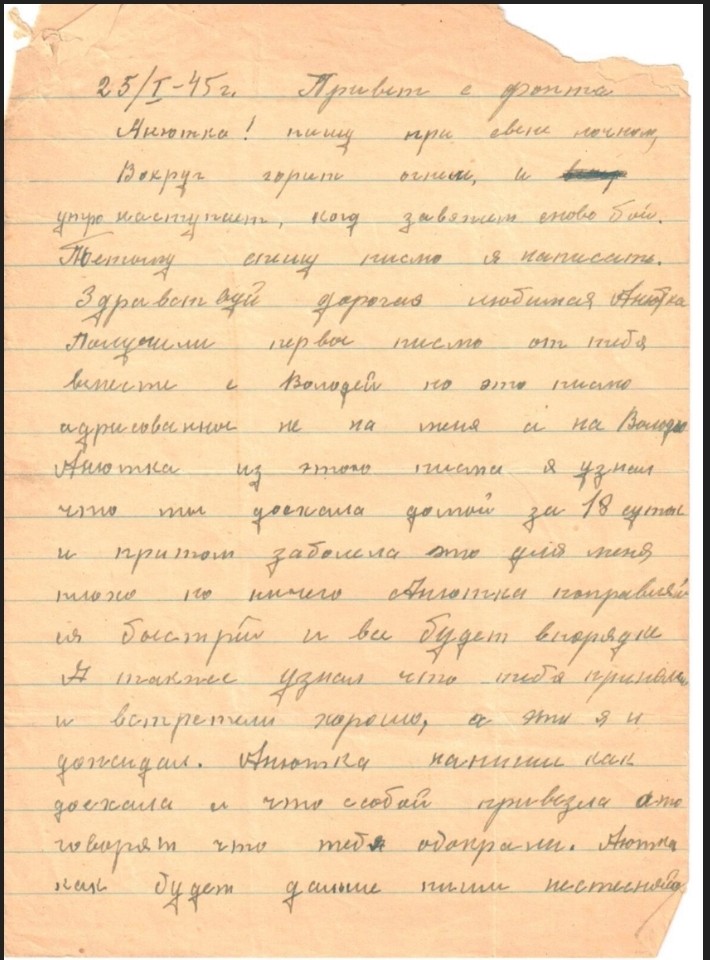 25/I-45г. Привет с фронта
Анютка! пишу при свете ночном,
Вокруг горит огнем, и
утро наступает, когд завяжем снова бой.
Поетому спешу письмо я написать.
Здравствуй дорогая любимая Анютка
Получили первое писмо от тебя
вместе с Володей но это писмо
адрисованное не на меня а на Володю
Анютка из этого писма я узнал
что ты доехала домой за 18 суток
и притом заболела это для меня
плохо но ничего Анютка поправляй
ся быстрей и все будет впорядке
А также узнал что тебя приняли
и встретели хорошо, а это я и
дожидал. Анютка напиши как
доехала и что ссобой привезла ато
говорят что тебя обокрали. Анютка
как будет дальше пиши нестесняйся